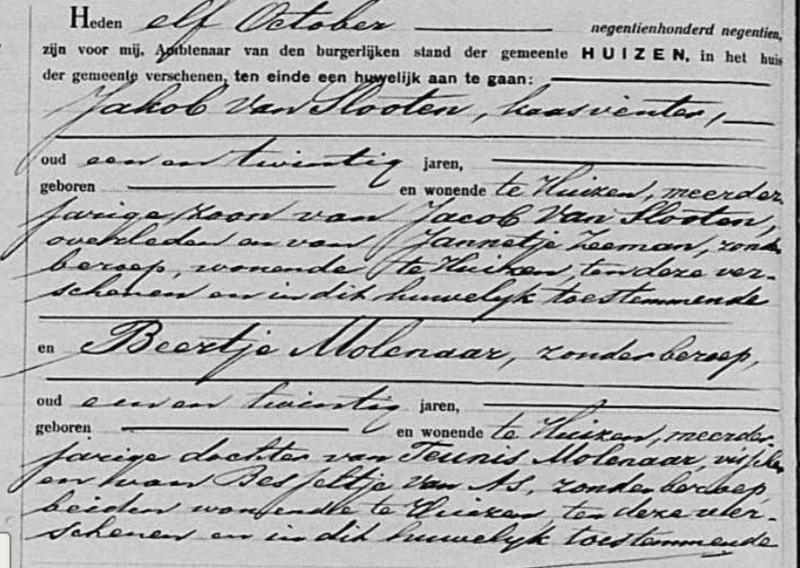 Heden elf October negentienhonderd negentien,
zijn voor mij, Ambtenaar van den burgerlijken stand der gemeente HUIZEN, in het huis
der gemeente verschenen, ten einde een huwelijk aan te gaan:
Jakob van Slooten, kaasventer,
oud een en twintig jaren,
geboren en wonende te Huizen, meerder
jarige zoon van Jacob van Slooten,
overleden en van Jannetje Zeeman, zonder
beroep, wonende te Huizen, ten deze ver-
schenen en in dit huwelijk toestemmende
en Beertje Molenaar, zonder beroep,
oud een en twintig jaren,
geboren en wonende te Huizen, meerder-
jarige dochter van Teunis Molenaar, visscher
en van Besseltje van As, zonder beroep,
beiden wonende te Huizen, ten deze ver-
schenen en in dit huwelijk toestemmende